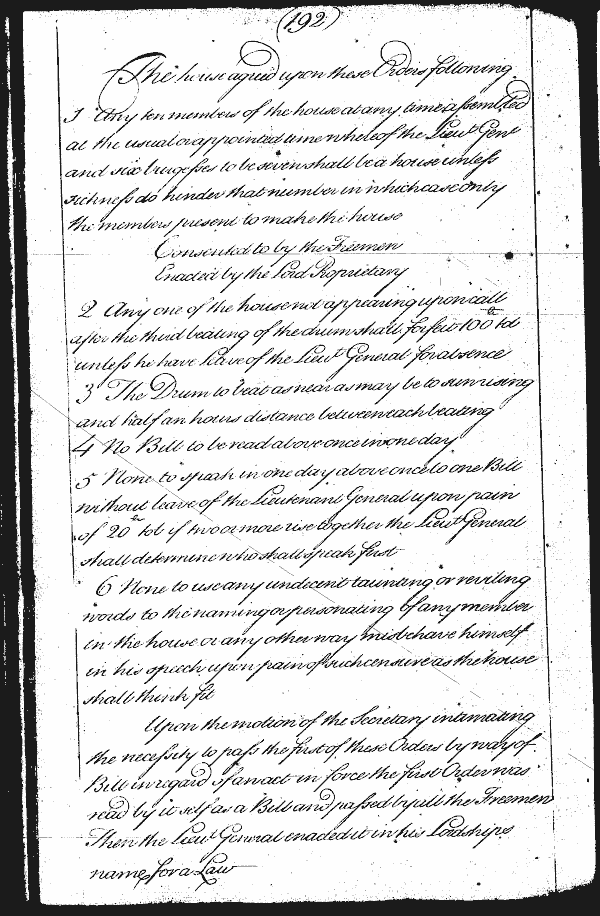 (192)
The house agried upon these Orders following
1 Any ten members of the house at any time assembled
at the usual or appointed time whereof the Lieut Gen^l
and six burgesses to be seven shall be a house unless
sickness do hinder that number in which case only
the members present to make the house
Consented to by the Freemen
Enacted by the Lord Proprietary
2 Any one of the house not appearing upon call
after the third beating of the drum shall forfeit 100 tob
unless he have leave of the Lieut General for absence
3 The Drum to beat as near as may be to sun rising
and half an hours distance between each beating
4 No Bill to be read above once in one day
5 None to speak in one day above once to one Bill
without leave of the Lieutenant General upon pain
of 20 tob if two or more rise together the Lieut General
shall determine who shall speak first
6 None to use any undecent taunting or reviling
words to the naming or personating of any member
in the house or any other way misbehave himself
in his speech upon pain of such censure as the house
shall think fit
Upon the motion of the Secretary intimating
the necessity to pass the first of these Orders by way of
Bill in regard of an act in force the first Order was
read by it self as a Bill and passed by all the Freemen
Then the Lieut General enacted it in his Lordships
name for a Law